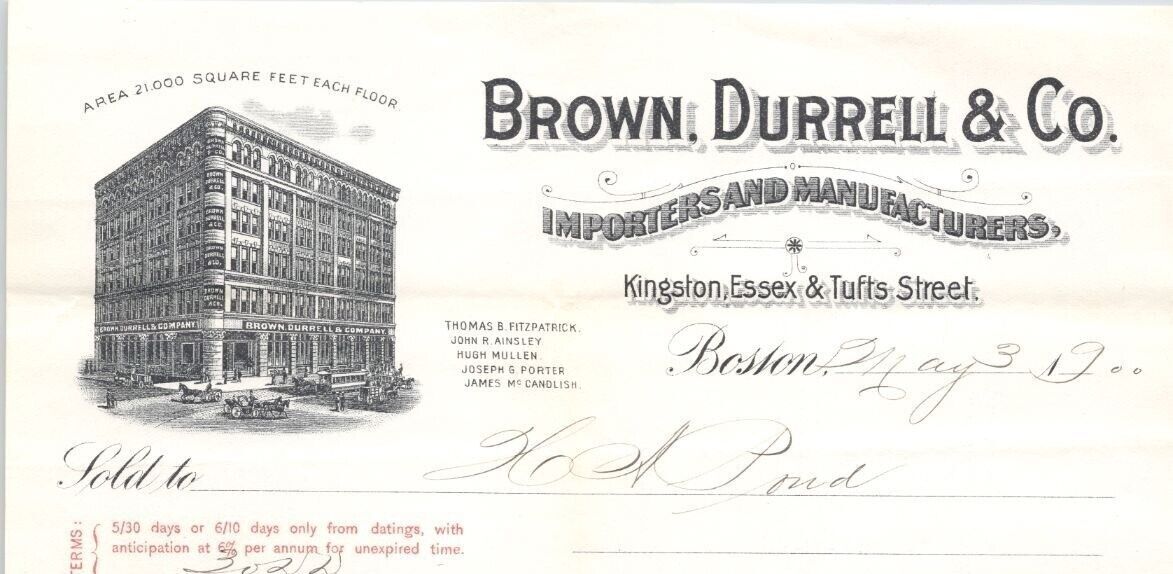 AREA 21.000 SQUARE FEET EACH FLOOR
BROWN, DURRELL & CO.
IMPORTERS AND MANUFACTURERS,
Kingston, Essex & Tufts Street.
BROWN DURRELL & CO.
BROWN DURRELL & CO.
BROWN DURRELL & CO.
BROWN DURRELL & CO.
BROWN. DURRELL & COMPANY.
BROWN. DURRELL & COMPANY.
THOMAS B. FITZPATRICK.
JOHN R. AINSLEY
HUGH MULLEN.
JOSEPH G PORTER
JAMES Mc CANDLISH.
Boston, May 3 1900
Sold to H A Pond
TERMS:
5/30 days or 6/10 days only from datings, with
anticipation at 6% per annum for unexpired time.